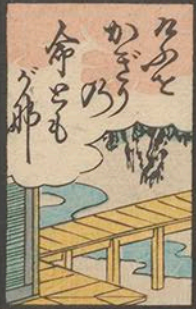 けふを
かぎり
の
命とも
がな